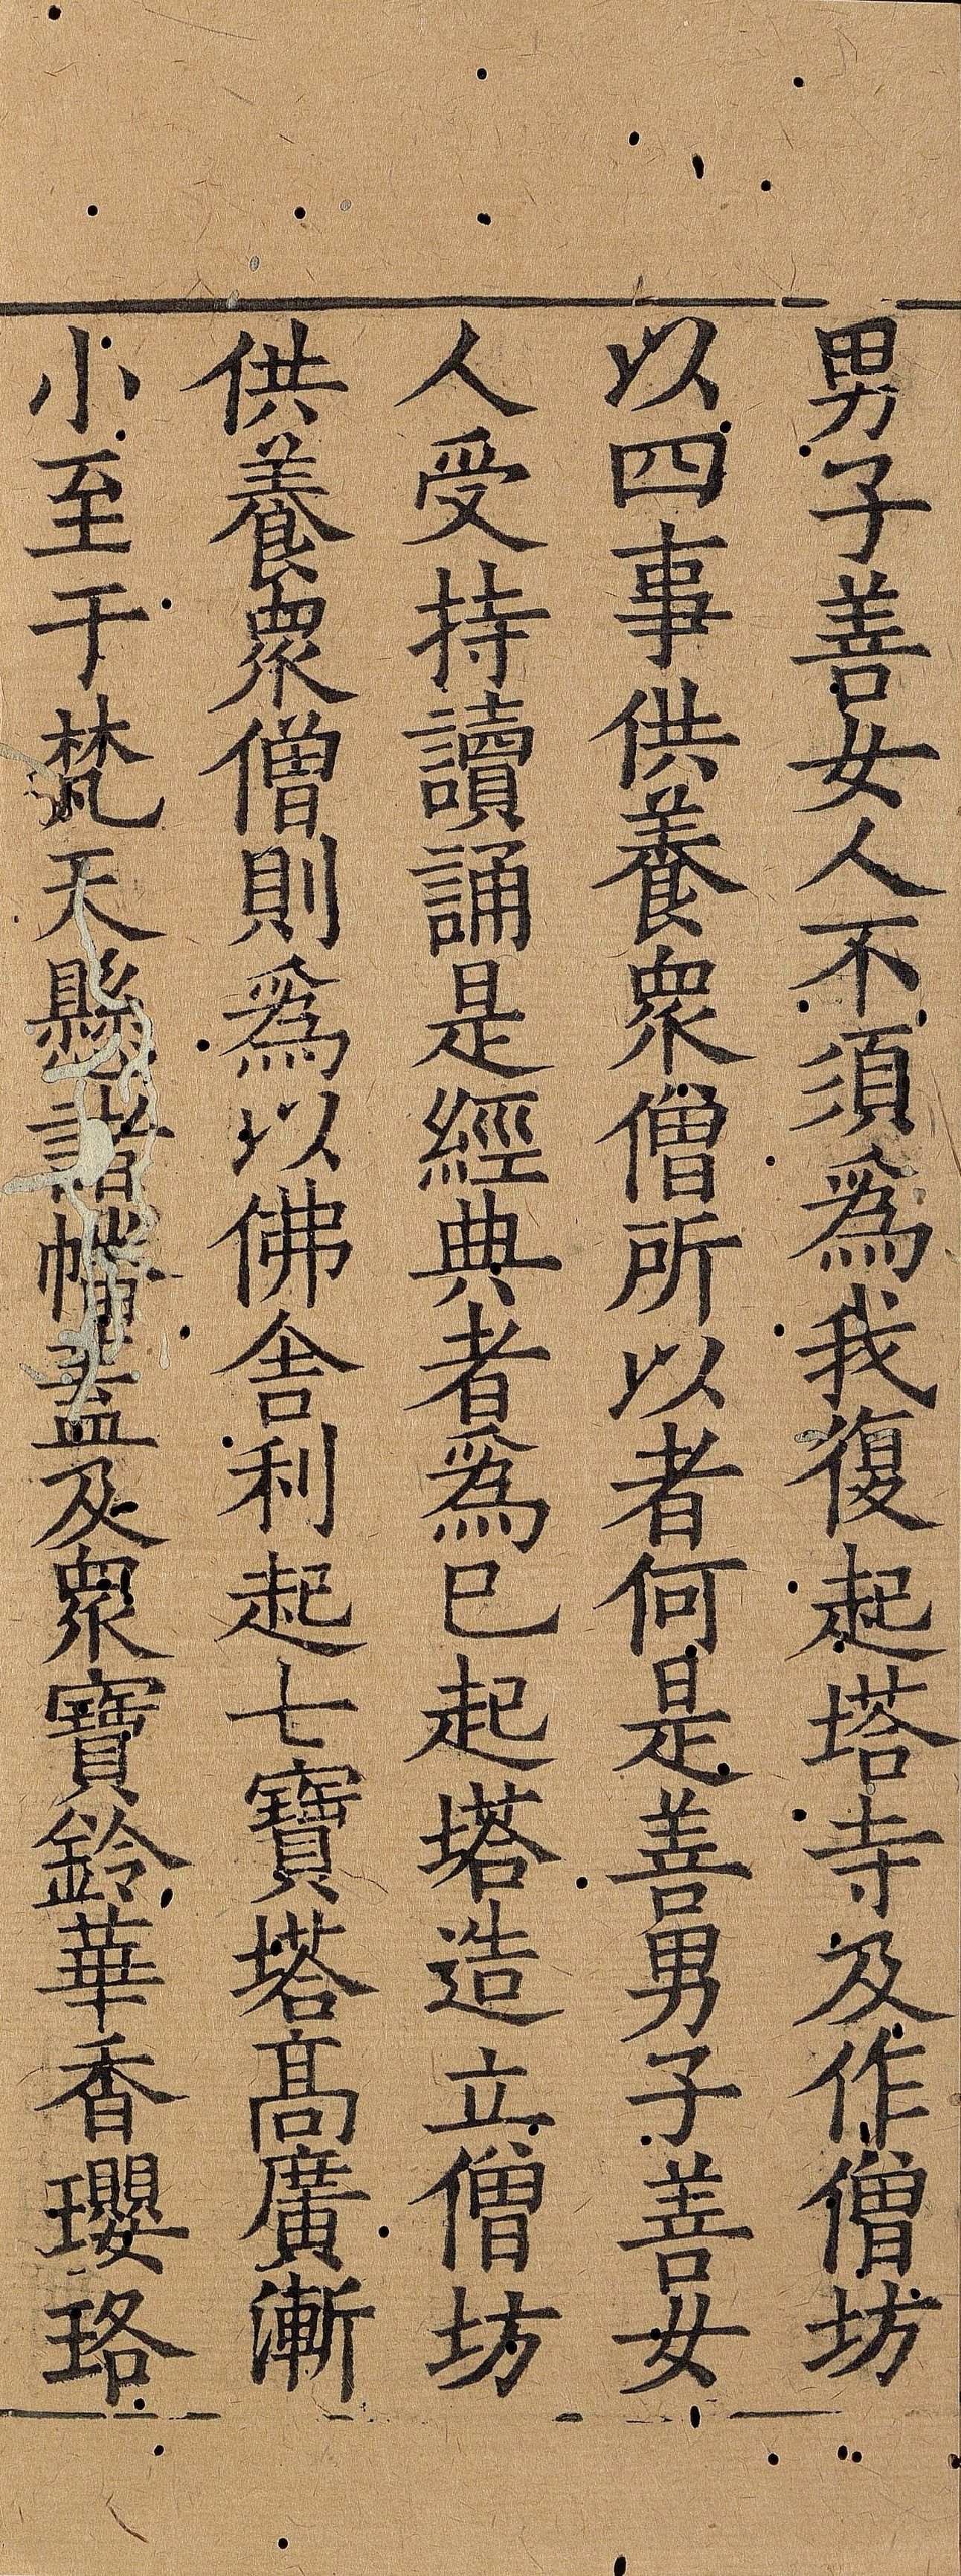 男子善女人不須爲我復起塔寺及作僧坊
以四事供養衆僧所以者何是善男子善女
人受持讀誦是經典者爲已起塔造立僧坊
供養衆僧則爲以佛舍利起七寶塔高廣漸
小至于梵天縣諸幡蓋及衆寶鈴華香瓔珞